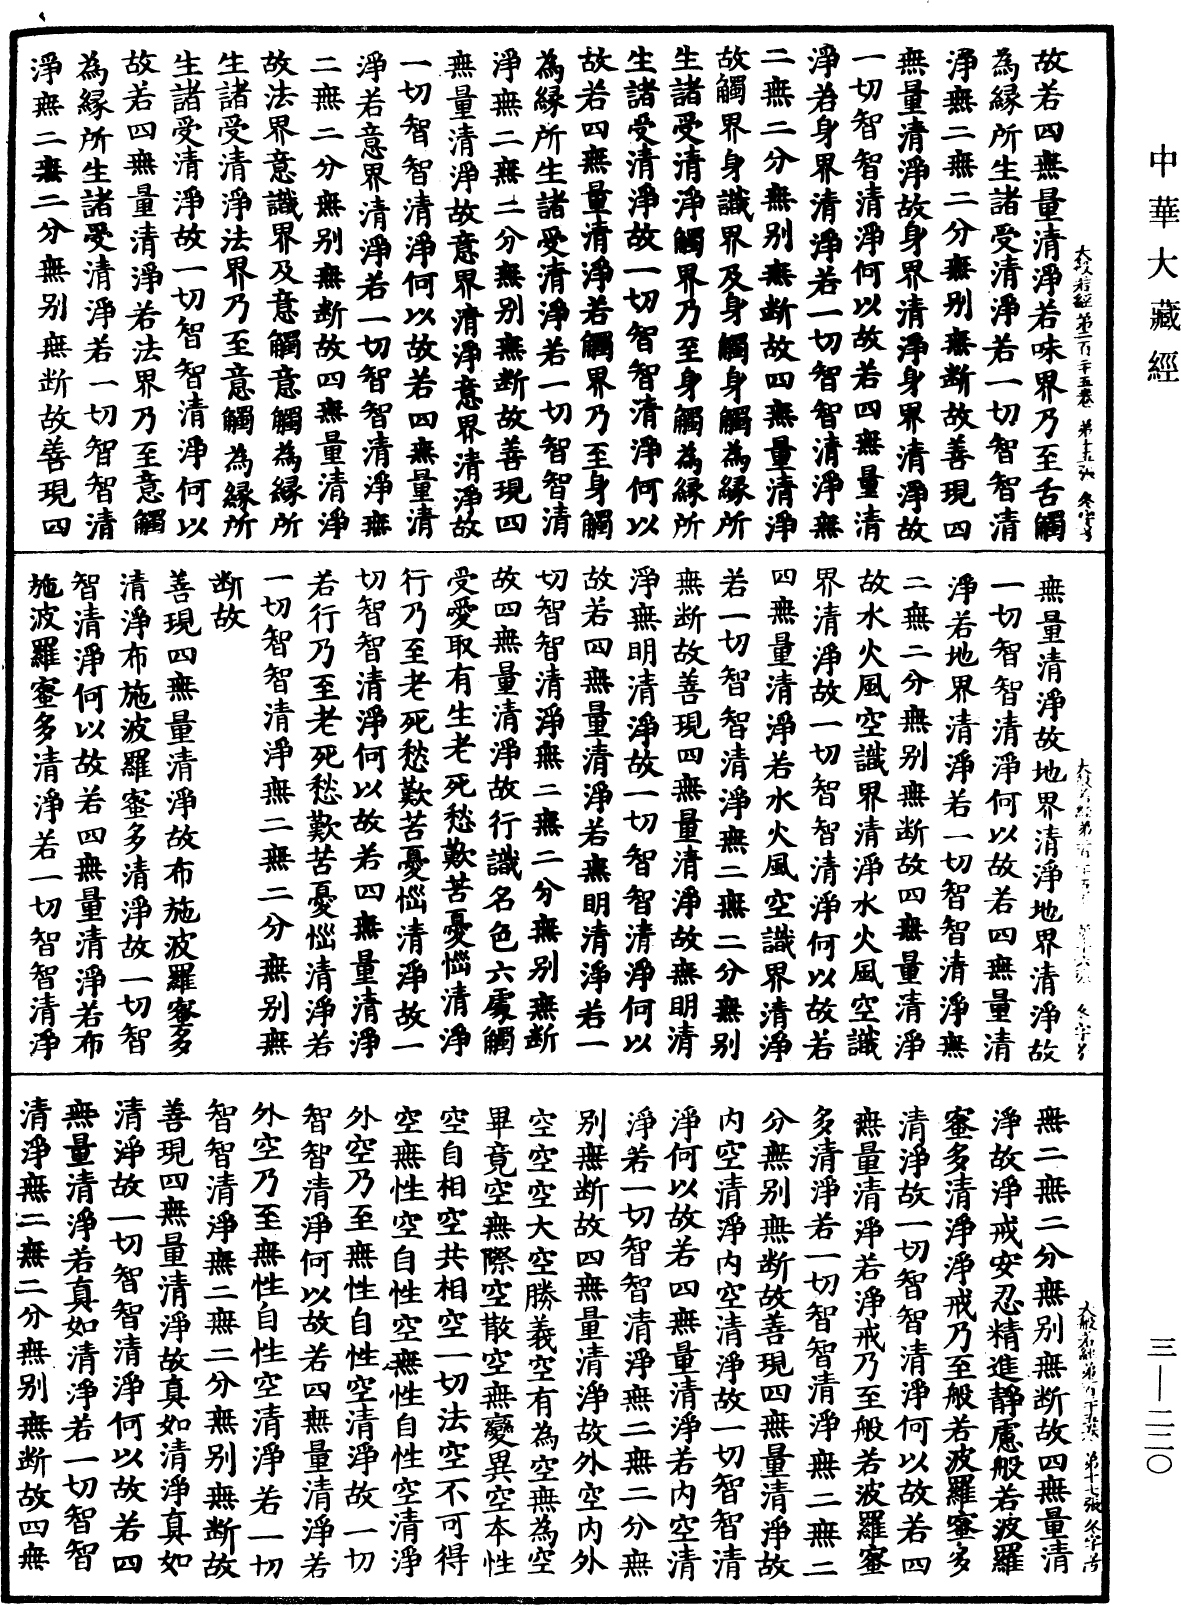 中華大藏經
故若四無量清淨若味界乃至舌觸
為緣所生諸受清淨若一切智智清
淨無二無二分無別無斷故善現四
無量清淨故身界清淨身界清淨故
一切智智清淨何以故若四無量清
淨若身界清淨若一切智智清淨無
二無二分無別無斷故四無量清淨
故觸界身識界及身觸身觸為緣所
生諸受清淨觸界乃至身觸為緣所
生諸受清淨故一切智智清淨何以
故若四無量清淨若觸界乃至身觸
為緣所生諸受清淨若一切智智清
淨無二無二分無別無斷故善現四
無量清淨故意界清淨意界清淨故
一切智智清淨何以故若四無量清
淨若意界清淨若一切智智清淨無
二無二分無別無斷故四無量清淨
故法界意識界及意觸意觸為緣所
生諸受清淨法界乃至意觸為緣所
生諸受清淨故一切智智清淨何以
故若四無量清淨若法界乃至意觸
為緣所生諸受清淨若一切智智清
淨無二無二分無別無斷故善現四
無量清淨故地界清淨地界清淨故
一切智智清淨何以故若四無量清
淨若地界清淨若一切智智清淨無
二無二分無別無斷故四無量清淨
故水火風空識界清淨水火風空識
界清淨故一切智智清淨何以故若
四無量清淨若水火風空識界清淨
若一切智智清淨無二無二分無別
無斷故善現四無量清淨故無明清
淨無明清淨故一切智智清淨何以
故若四無量清淨若無明清淨若一
切智智清淨無二無二分無別無斷
故四無量清淨故行識名色六處觸
受愛取有生老死愁歎苦憂惱清淨
行乃至老死愁歎苦憂惱清淨故一
切智智清淨何以故若四無量清淨
若行乃至老死愁歎苦憂惱清淨若
一切智智清淨無二無二分無別無
斷故
善現四無量清淨故布施波羅蜜多
清淨布施波羅蜜多清淨故一切智
智清淨何以故若四無量清淨若布
施波羅蜜多清淨若一切智智清淨
無二無二分無別無斷故四無量清
淨故淨戒安忍精進靜慮般若波羅
蜜多清淨淨戒乃至般若波羅蜜多
清淨故一切智智清淨何以故若四
無量清淨若淨戒乃至般若波羅蜜
多清淨若一切智智清淨無二無二
分無別無斷故善現四無量清淨故
內空清淨內空清淨故一切智智清
淨何以故若四無量清淨若內空清
淨若一切智智清淨無二無二分無
別無斷故四無量清淨故外空內外
空空空大空勝義空有為空無為空
畢竟空無際空散空無變異空本性
空自相空共相空一切法空不可得
空無性空自性空無性自性空清淨
外空乃至無性自性空清淨故一切
智智清淨何以故若四無量清淨若
外空乃至無性自性空清淨若一切
智智清淨無二無二分無別無斷故
善現四無量清淨故真如清淨真如
清淨故一切智智清淨何以故若四
無量清淨若真如清淨若一切智智
清淨無二無二分無別無斷故四無
三—二二〇